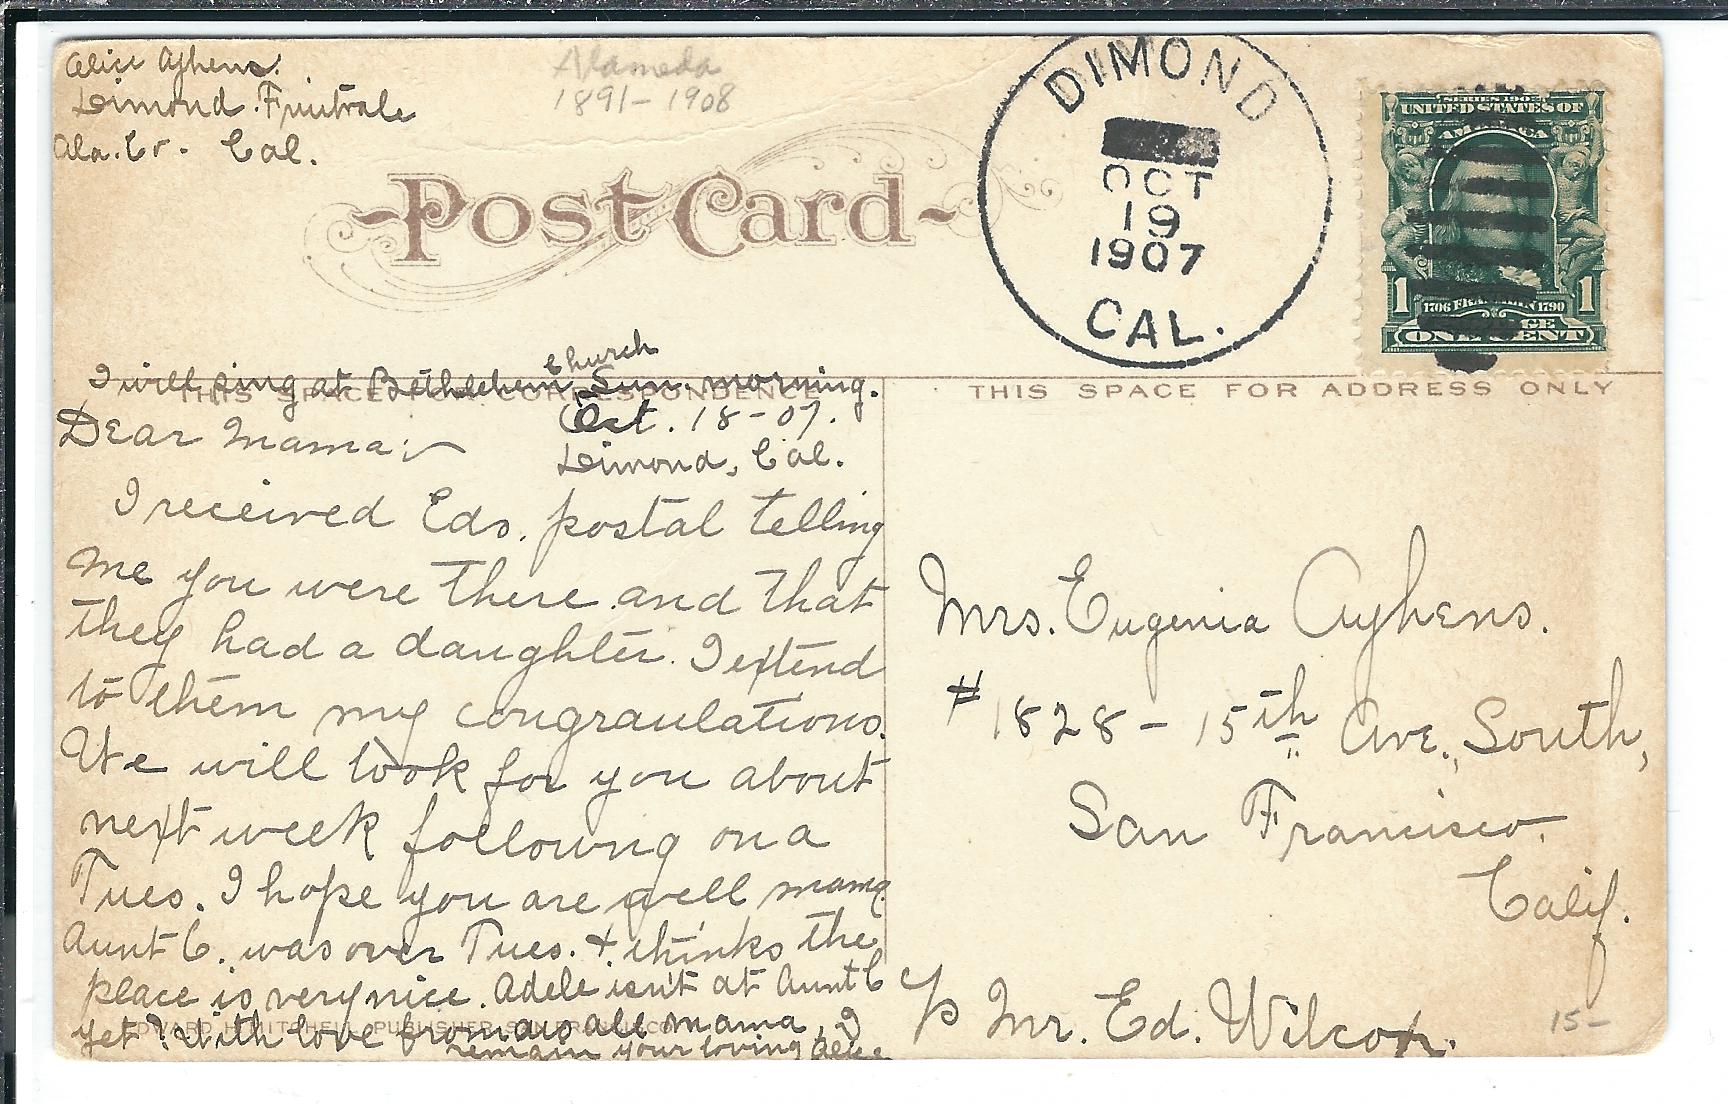 Alice Ayhens.
Dimond. Fruitvale
Ala. Co. Cal.
Alameda
1891-1908
Post Card
DIMOND
OCT
19
1907
CAL.
SERIES 1902
UNITED STATES OF
AMERICA
1 1706 FRANKLIN 1790 1
ONE CENT
Church
I will sing at Bethlehem Sun. morning.
THIS SPACE FOR CORRESPONDENCE
THIS SPACE FOR ADDRESS ONLY
Oct. 18-07.
Dear Mama:~
Dimond, Cal.
I received Eds. postal telling
me you were there and that
they had a daughter. I extend
to them my congraulations.
We will look for you about
next week following on a
Tues. I hope you are well mama.
Aunt C. was over Tues. & thinks the
place is very nice. Adele isn't at Aunt C
yet? With love from us all mama, I
remain your loving Alice
EDWARD H. MITCHELL, PUBLISHER, SAN FRANCISCO
Mrs. Eugenia Ayhens.
#1828 - 15th Ave., South,
San Francisco.
Calif.
c/o Mr. Ed. Wilcox.
15-